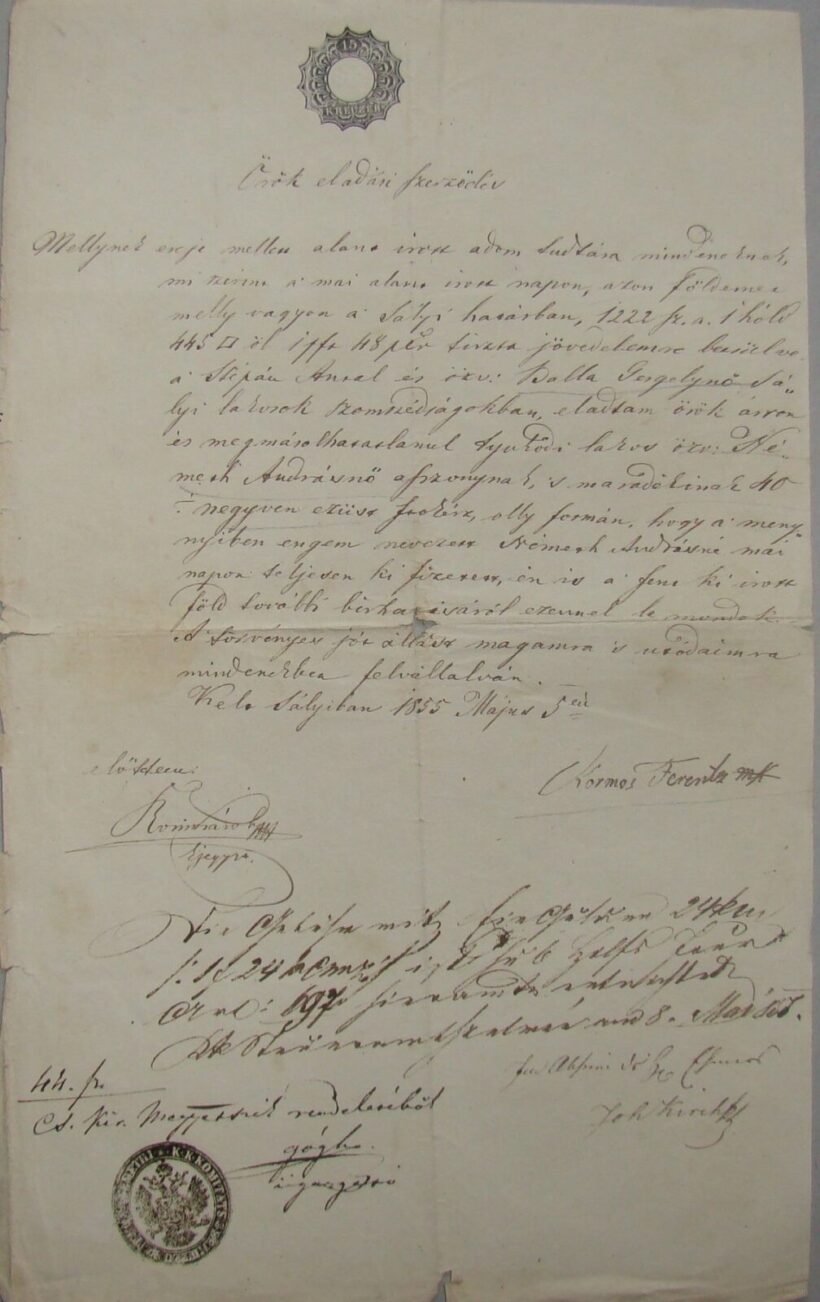 15
KREUZER
Örök eladási szerződés
Mellynek ereje mellett alant irott adom tudtára mindeneknek,
mi szerint a mai alant irott napon, azon Földemet
melly vagyon a Sályi határban, 1222 sz. a. 1 hóld
445 □ öl 1 fft 48 pxr tiszta jövedelemre becsülve
a Stépán Antal és özv: Balla Gergelynő Sá„
lyi lakosok szomszédságokban, eladtam örök áron
és megmásolhatatlanul tyukodi lakos özv: Né„
meth Andrásnő asszonynak, 's maradékinak 40
negyven ezüst ftokért, olly formán, hogy a meny„
nyiben engem nevezett Németh Andrásné mai
napon teljesen ki fizetett, én is a fent ki irott
föld további birhatásáról ezennel le mondok.
A törvényes jót állást magamra 's utódaimra
mindenekben felvállalván.
Kelt Sályiban 1855 Május 5én
előttem:
Kormos Ferentz mk
jegyző.
Die Gebühr mit Ein Gulden 24 kr
1 f 24
Art: 697 hieramts entrichtet
KK Steueramt am 8. Mai
44. sz.
Cs. Kir. Megyetörvényszék rendeletéből
igazgató
Joh
K. K. KOMITATS